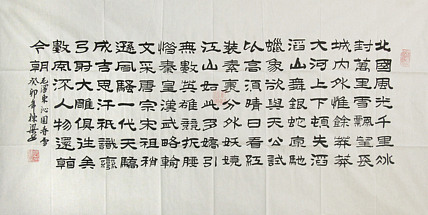 北國風光千里冰
封萬里雪飄望長
城内外惟餘莽莽
大河上下頓失滔
滔山舞銀蛇原馳
蠟象欲與天公試
比高須晴日看紅
裝素裹分外妖嬈
江山如此多嬌引
無數英雄競折腰
惜秦皇漢武略輸
文采唐宗宋祖稍
遜風騷一代天驕
成吉思汗祇識彎
弓射大雕俱往矣
數風流人物還看
今朝
毛澤東沁園春雪
癸卯年